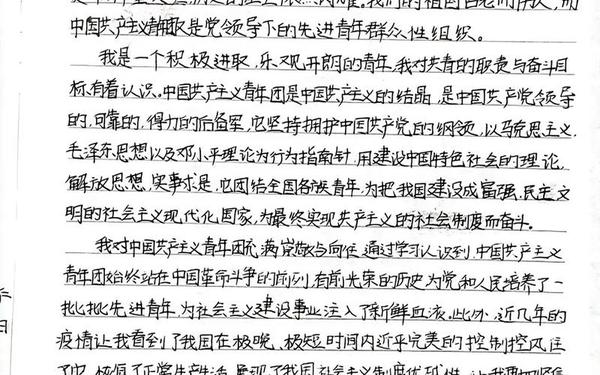 我们的祖国
中国共产主义青年团是党领导下的先进青年群众性组织。
我是一个积极进取,乐观开朗的青年,我对共青的职责与奋斗目
标有着认识。中国共产主义青年团是中国共产主义的结晶,是中国共产党领导
的,可靠的,得力的后备军,它坚持拥护中国共产党的纲领,以马克思主义,
毛泽东思想以及邓小平理论为行为指南针,用建设中国特色社会的理论,
解放思想,实事求是,它团结全国各族青年,为把我国建设成富强,民主,文
明的社会主义现代化国家,为最终实现共产主义的社会制度而奋斗。
我对中国共产主义青年团充满崇敬与向往,通过学习认识到,中国共产主义
青年团始终站在中国革命斗争的前列,有前光荣的历史,为党和人民培养了一
批批先进青年,为社会主义建设事业注入了新鲜血液,此外,近几年的
疫情让我看到了我国在极晚,极短时间内近乎完美的控制控风住
了中,恢复了正常生产生活,展现了我国社会主义制度优越性,让我更加坚信